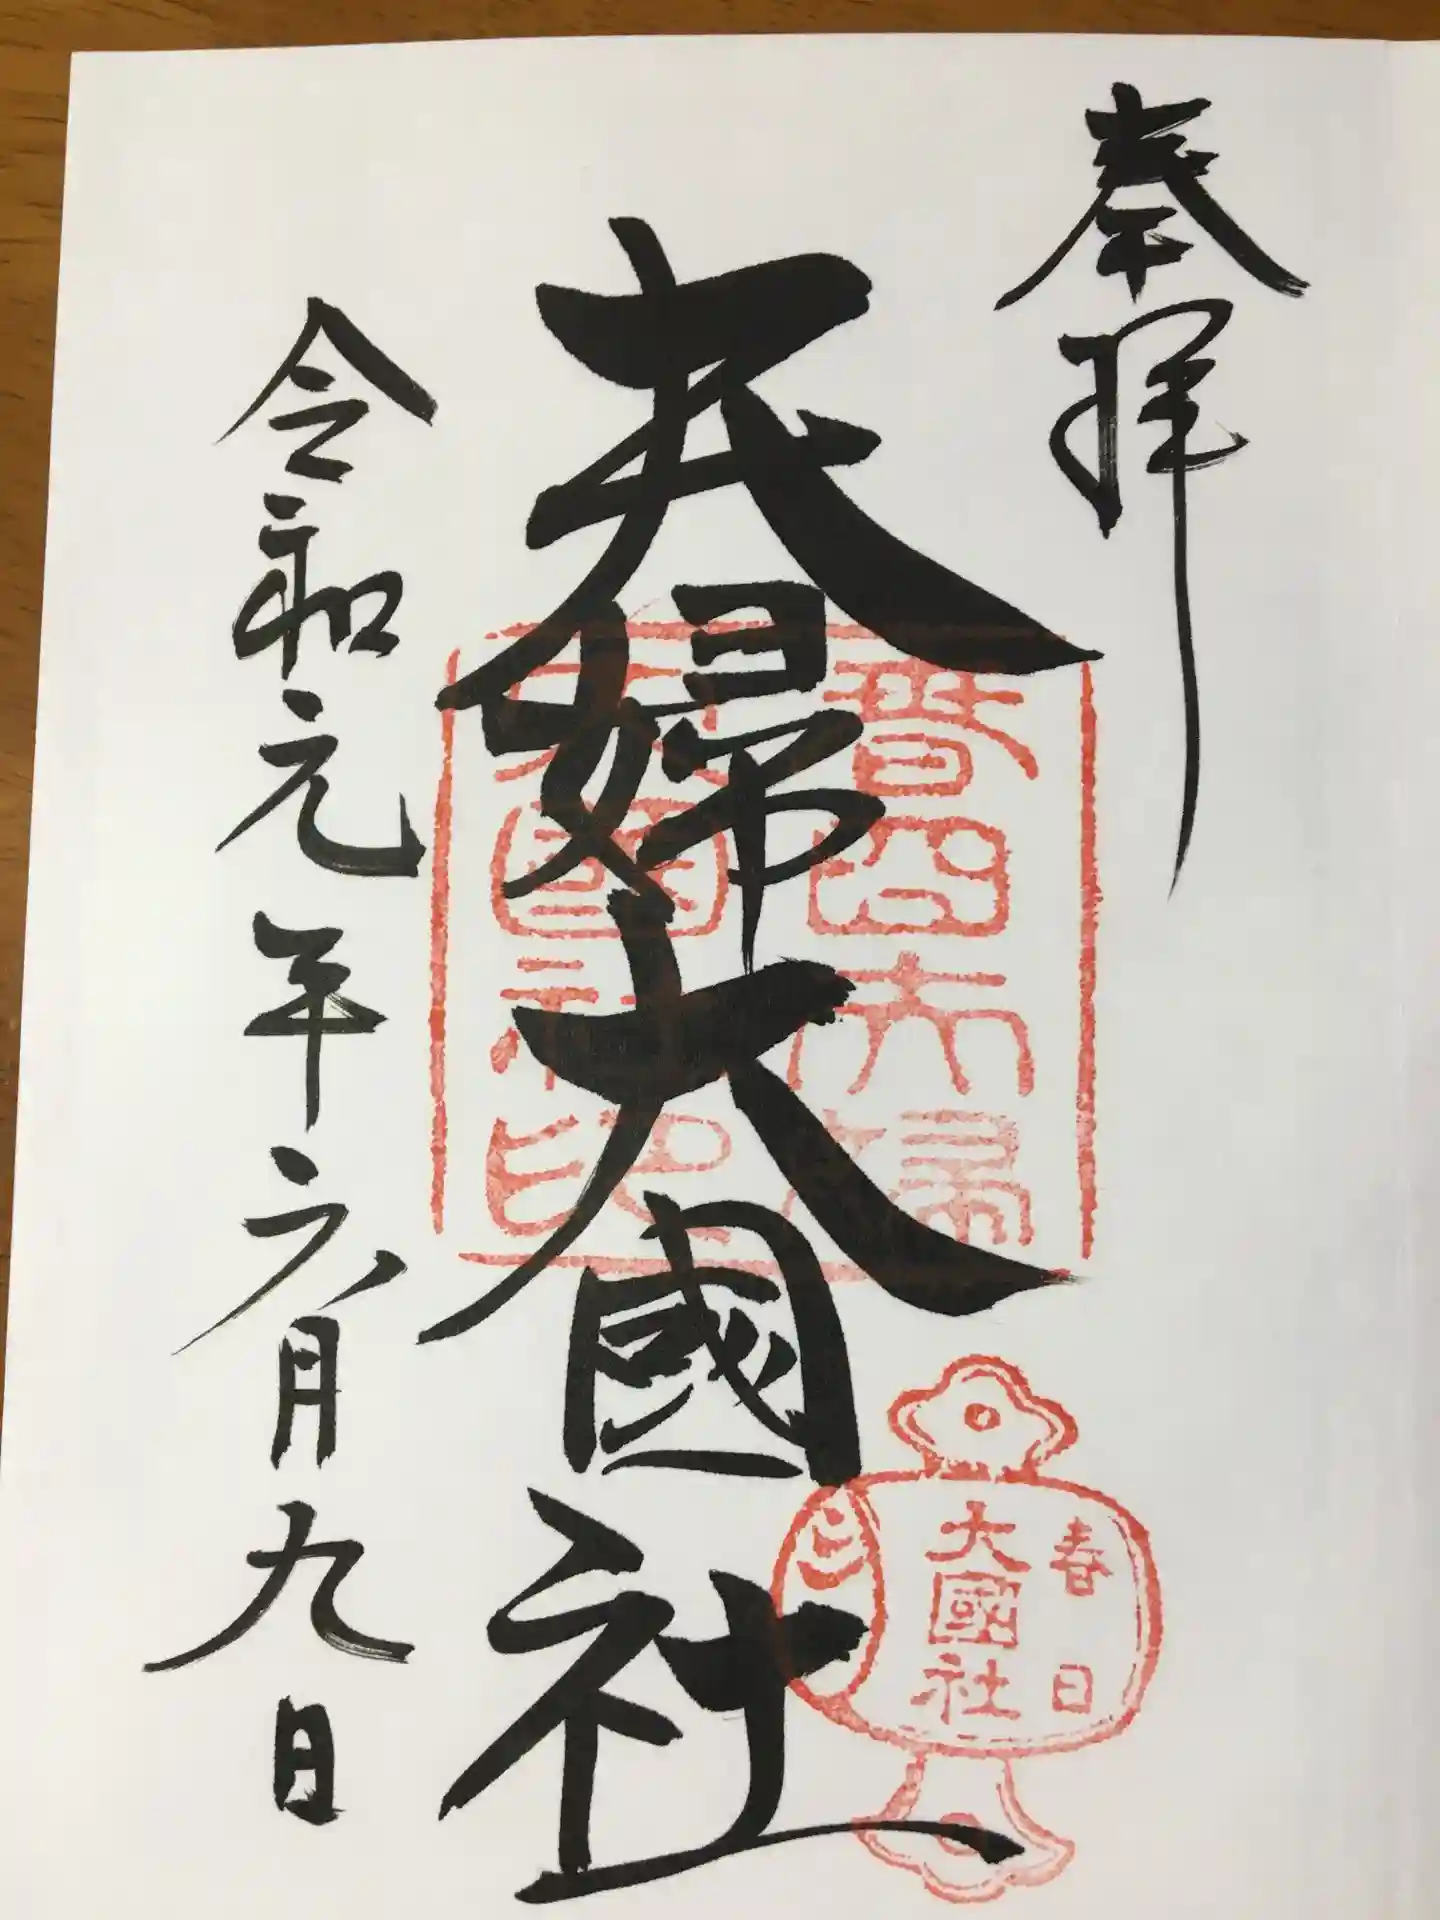 奉拝
夫婦大國社
令和元年六月九日
春日夫婦
大國社印
春日
大國社